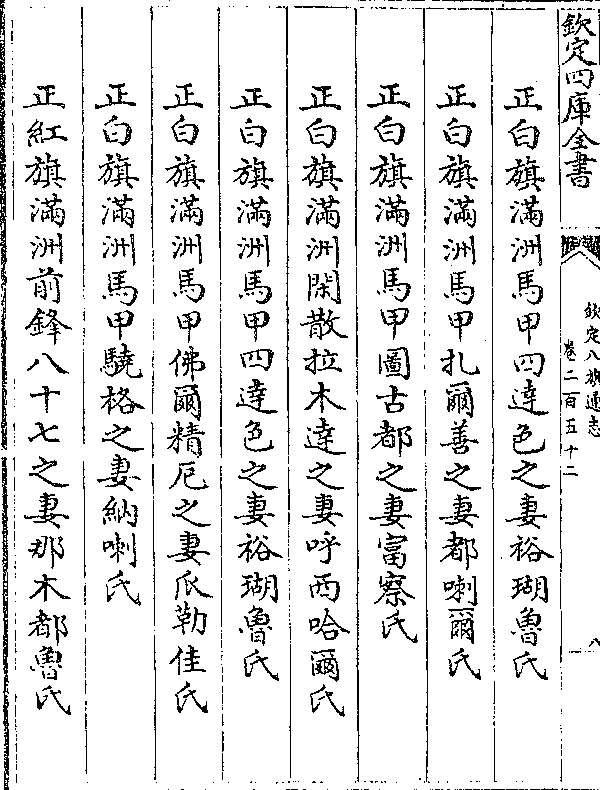 欽定四庫全書
欽定八旗通志
卷二百五十二
八
正白旗滿洲馬甲四達色之妻裕瑚魯氏
正白旗滿洲馬甲扎爾善之妻都喇爾氏
正白旗滿洲馬甲圖古都之妻富察氏
正白旗滿洲閑散拉木達之妻呼西哈爾氏
正白旗滿洲馬甲四達色之妻裕瑚魯氏
正白旗滿洲馬甲佛爾精厄之妻瓜勒佳氏
正白旗滿洲馬甲驍格之妻納喇氏
正紅旗滿洲前鋒八十七之妻那木都魯氏